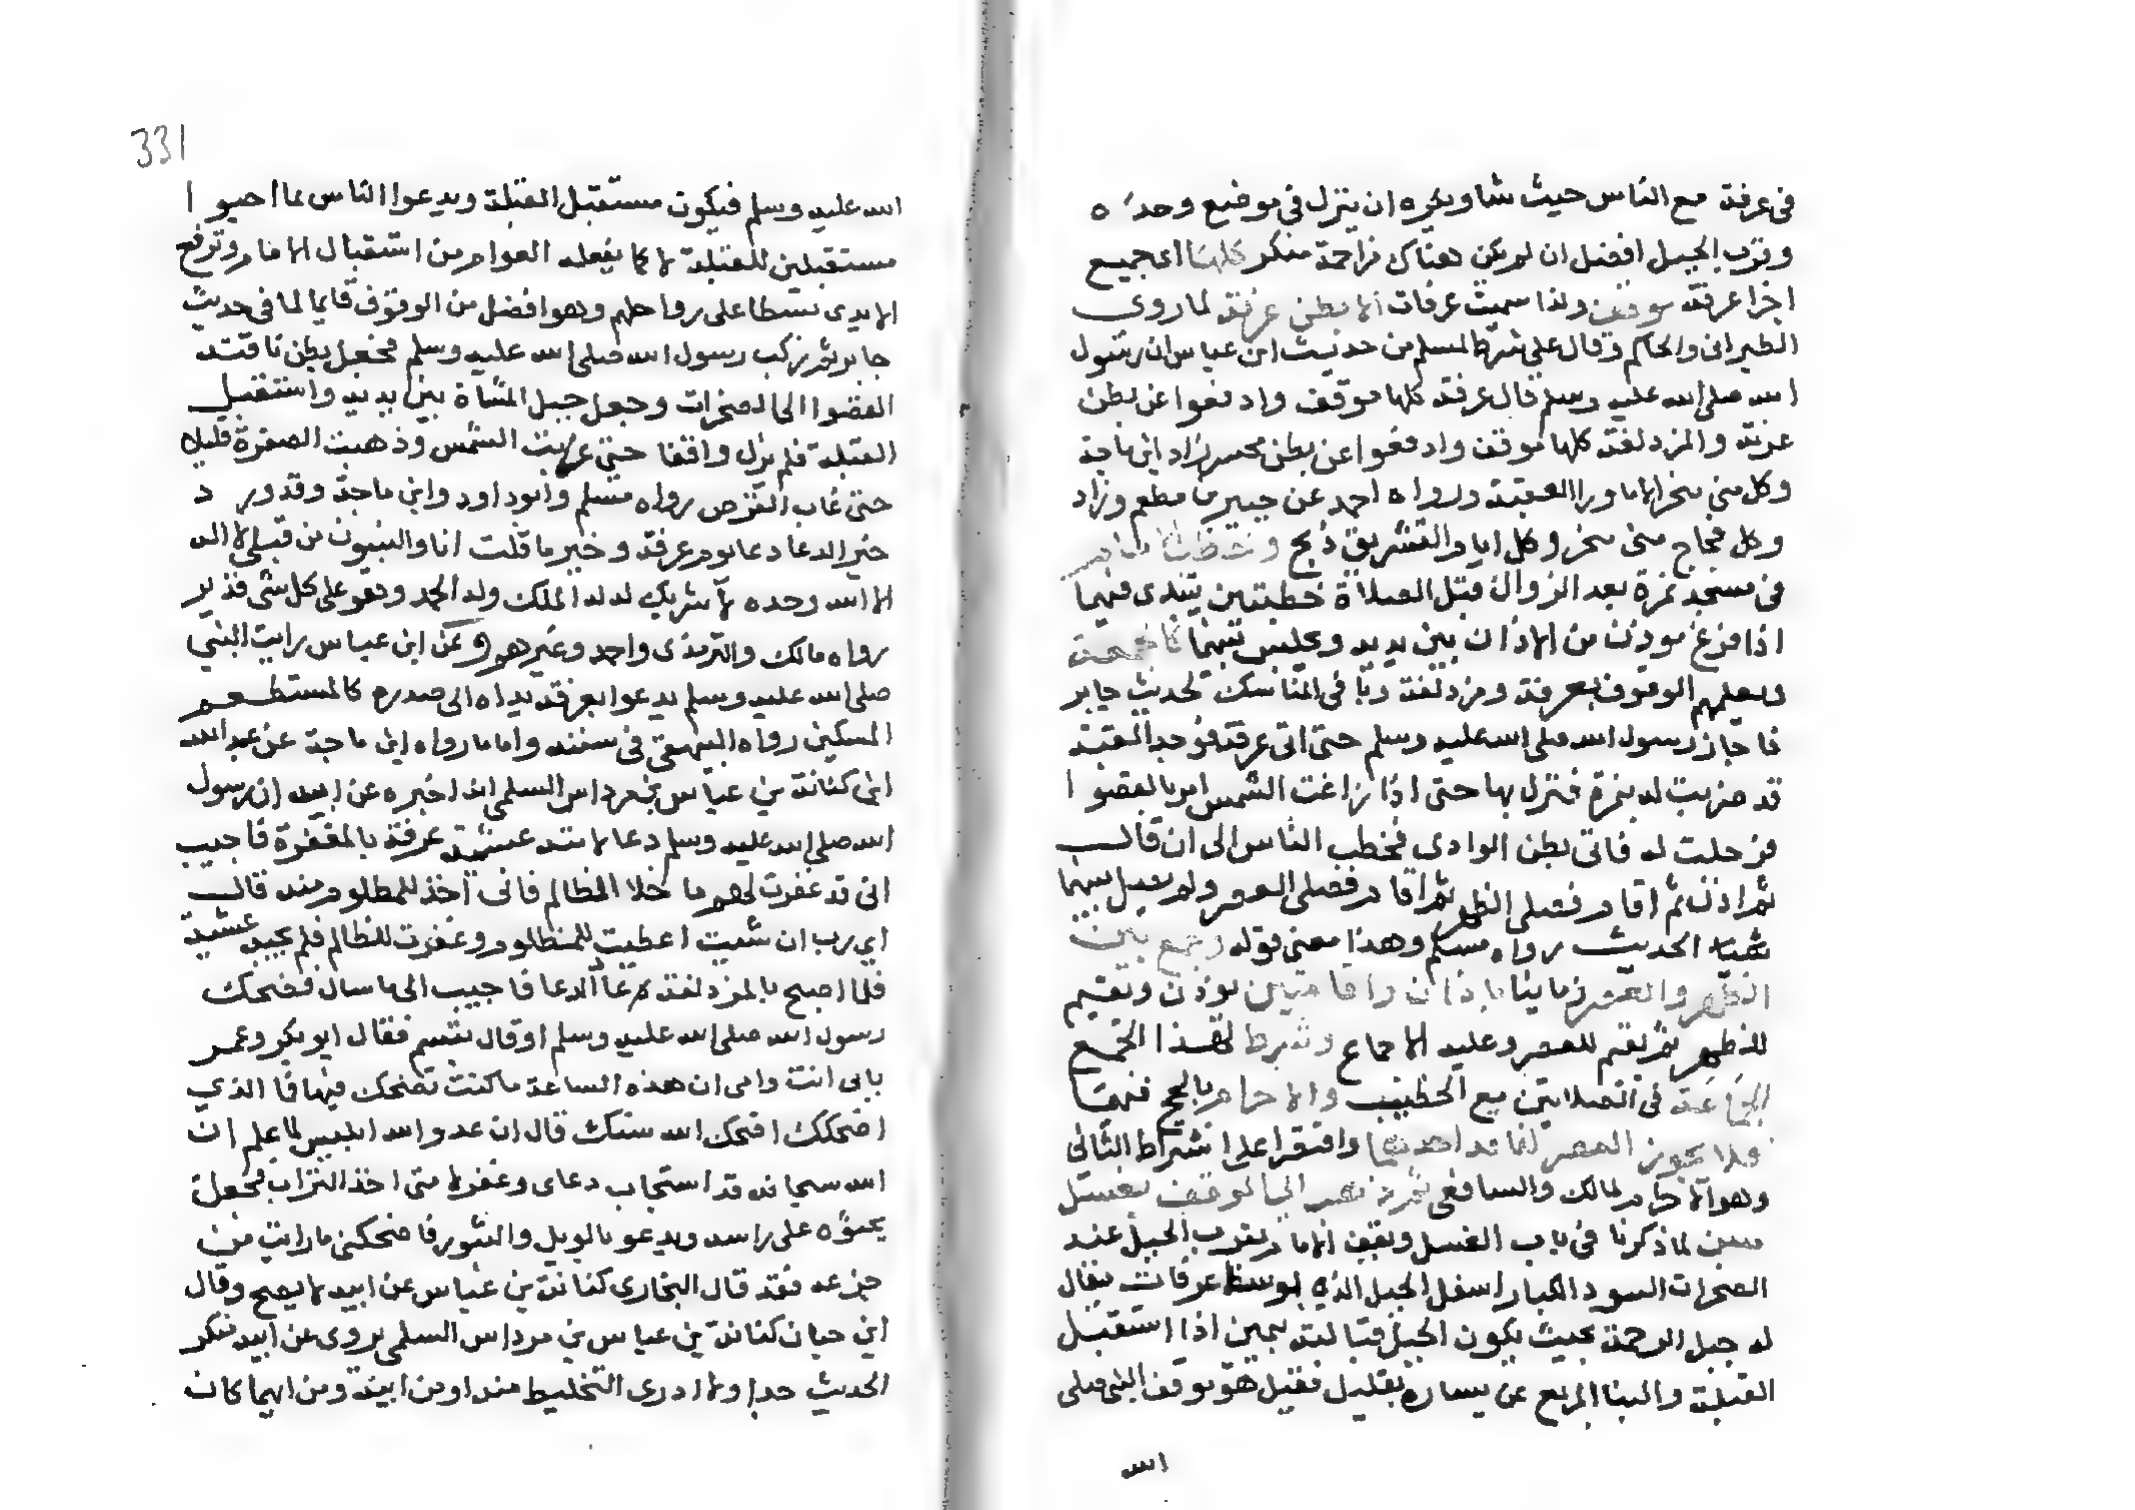 في عرفة مع الناس حيث شا ويكره ان ينزل في موضع وحده
وقرب الجبل افضل ان لم يكن هناك مزاحمة منكر كلها اي جميع
اجزا عرفة موقف ولذا سميت عرفات الا بطن عرنة لما روى
الطبراني والحاكم وقال على شرط المسلم من حديث ابن عباس ان رسول
الله صلى الله عليه وسلم قال عرفة كلها موقف وادفعوا عن بطن
عرنة والمزدلفة كلها موقف وادفعوا عن بطن محسر زاد ابن ماجة
وكل منى منحر الا ما ورا العقبة ورواه احمد عن جبير بن مطعم وزاد
وكل فجاج منى منحر وكل ايام التشريق ذبح وخطب الامام
في مسجد نمرة بعد الزوال قبل الصلاة خطبتين يبتدى فيهما
اذا فرغ موذن من الاذان بين يديه ويجلس بينهما كالجمعة
ويعلمهم الوقوف بعرفة ومزدلفة وباقي المناسك لحديث جابر
فاجاز رسول الله صلى الله عليه وسلم حتى اتى عرفة فوجد القبة
قد ضربت له بنمرة فنزل بها حتى اذا زاغت الشمس امر بالقصوا
فرحلت له فاتى بطن الوادى فخطب الناس الى ان قال
ثم اذن ثم اقام فصلى الظهر ثم اقام فصلى العصر ولم يصل بينهما
شيا الحديث رواه مسلم وهذا معنى قوله وجمع بين
الظهر والعصر باذان واقامتين يوذن ويقيم
للظهر ثم يقيم للعصر وعليه الاجماع وشرط لهذا الجمع
الجماعة في الصلاتين مع الخطيب والاحرام بالحج فيهما
فلا يجوز العصر لفاقد احدهما واقتقرا على اشتراط الثاني
وهو الاحرام لمالك والشافعي ثم ذهب الى الموقف بغسل
سن لما ذكرنا في باب الغسل ويقف الامام بقرب الجبل عند
الصخرات السود الكبار اسفل الجبل الذي بوسط عرفات يقال
له جبل الرحمة بحيث يكون الجبل قبالته بيمين اذا استقبل
القبلة والبنا المربع عن يساره بقليل فقيل هو موقف النبي صلى
الله
331
الله عليه وسلم فيكون مستقبل القبلة ويدعوا الناس بما احبوا
مستقبلين للقبلة لا كما يفعله العوام من استقبال الامام وترفع
الايدى بسطا على رواحلهم وهو افضل من الوقوف قايما لما في حديث
جابر ثم ركب رسول الله صلى الله عليه وسلم فجعل بطن ناقته
القصوا الى الصخرات وجعل جبل المشاة بين يديه واستقبل
القبلة فلم يزل واقفا حتى غربت الشمس وذهبت الصفرة قليلا
حتى غاب القرص رواه مسلم وابو داود وابن ماجة وقد ورد
خير الدعا دعا يوم عرفة وخير ما قلت انا والنبيون من قبلي لا اله
الا الله وحده لا شريك له له الملك وله الحمد وهو على كل شى قدير
رواه مالك والترمذى واحمد وغيرهم وعن ابن عباس رايت النبي
صلى الله عليه وسلم يدعوا بعرفة يداه الى صدره كالمستطعم
المسكين رواه البيهقى في سننه واما ما رواه ابن ماجة عن عبد الله
ابن كنانة بن عباس بن مرداس السلمى انه اخبره عن ابيه ان رسول
الله صلى الله عليه وسلم دعا لامته عشية عرفة بالمغفرة فاجيب
انى قد غفرت لهم ما خلا المظالم فانى اخذ للمظلوم منه قال
اي رب ان شيت اعطيت للمظلوم وغفرت للظالم فلم يجب عشية
فلما اصبح بالمزدلفة دعا الدعا فاجيب الى ما سال فضحك
رسول الله صلى الله عليه وسلم او قال تبسم فقال ابو بكر وعمر
بابى انت وامى ان هذه الساعة ما كنت تضحك فيها فا الذي
اضحكك اضحك الله سنك قال ان عدو الله ابليس لما علم ان
الله سبحانه قد استجاب دعاى وغفر لامتى اخذ التراب فجعل
يحثوه على راسه ويدعو بالويل والثبور فاضحكنى ما رايت من
جزعه فقد قال البخارى كنانة بن عباس عن ابيه لا يصح وقال
ابن حبان كنانة بن عباس بن مرداس السلمى يروى عن ابيه منكر
الحديث جدا ولا ادرى التخليط منه او من ابيه ومن ايهما كان